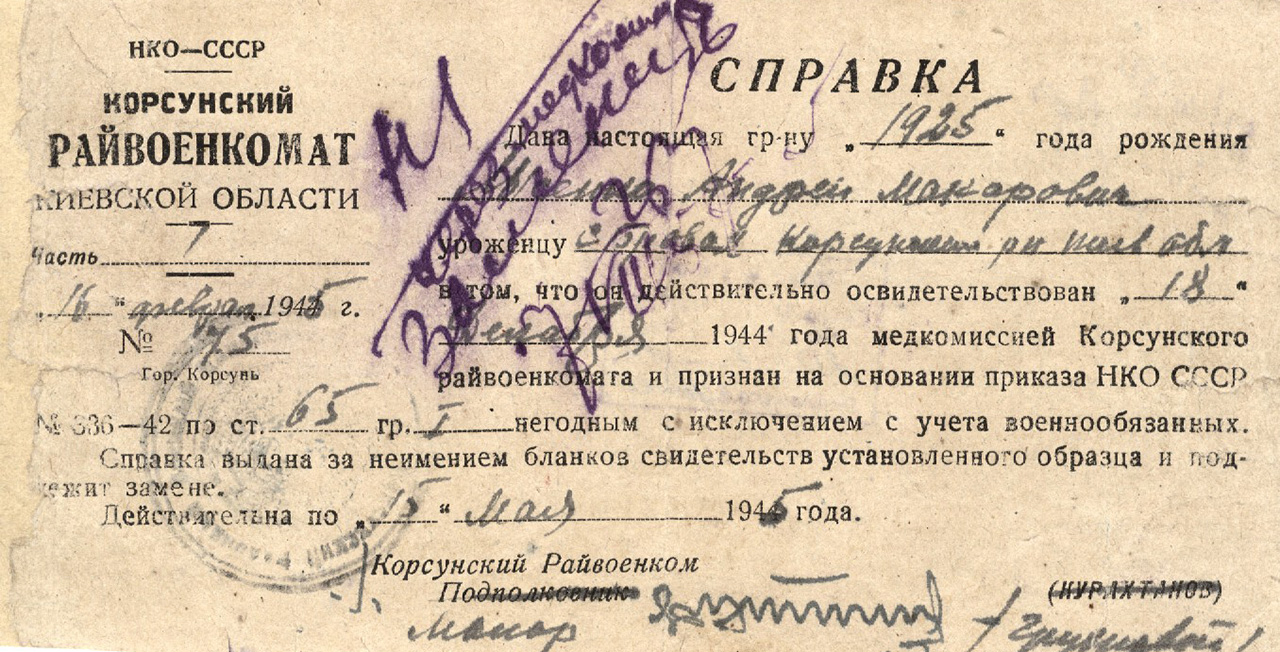 НКО—СССР
КОРСУНСКИЙ
РАЙВОЕНКОМАТ
КИЕВСКОЙ ОБЛАСТИ
Часть 1
„16“ феврал 1945 г.
№ 75
Гор. Корсунь
СПРАВКА
Дана настоящая гр-ну „1925“ года рождения
Андрей Макарович
уроженцу с Корсунского рн киев обл
в том, что он действительно освидетельствован „18“
декабря 1944 года медкомиссией Корсунского
райвоенкомата и признан на основании приказа НКО СССР
№ 336—42 по ст. 65 гр. I негодным с исключением с учета военнообязанных.
Справка выдана за неимением бланков свидетельств установленного образца и под-
лежит замене.
Действительна по „15“ Мая 1945 года.
Корсунский Райвоенком
Подполковник (КУРАХТАНОВ)
Маиор